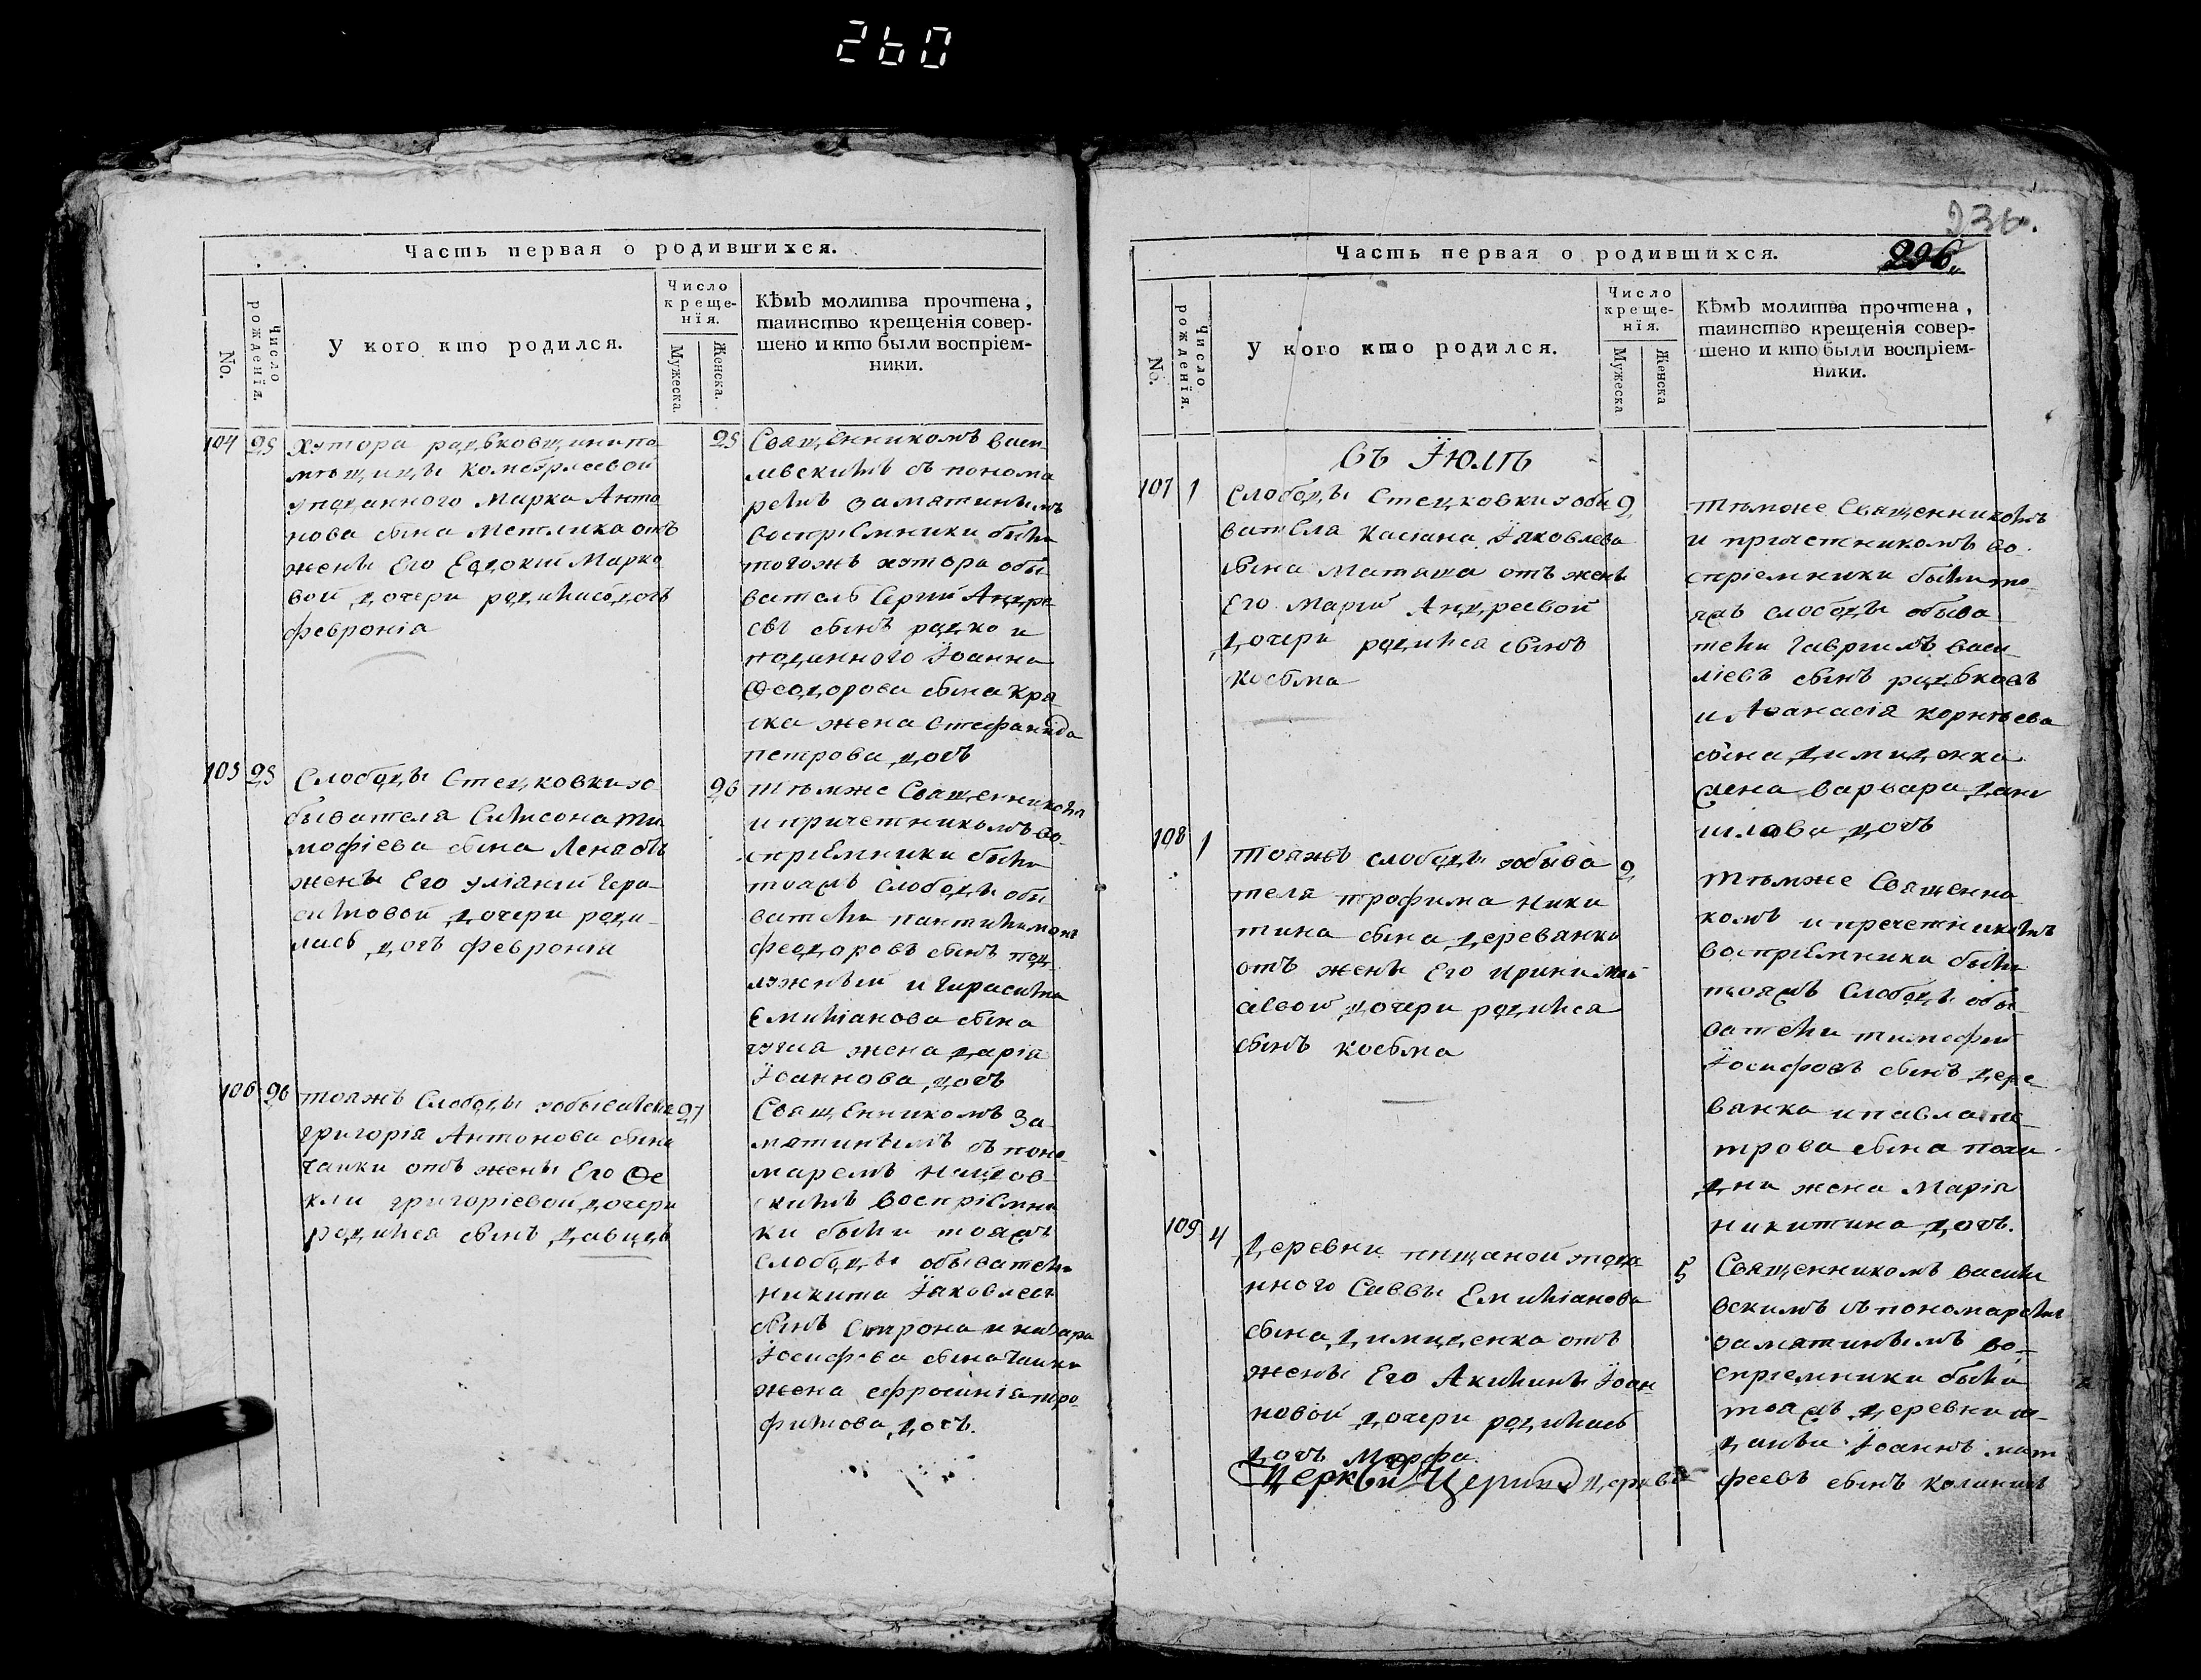 260
Часть первая о родившихся.
No.
Число рожденїя.
У кого кто родился.
Число креще-нїя.
Мужеска
Женска.
Кѣмъ молитва прочтена,
таинство крещенія совер-
шено и кто были воспріем-
ники.
104 25 Хутора радьковщини по 25
мѣщицы
уподанного Марка Анто
нова сына Метлика отъ
жены Его Евдокіи Марко
вой дочери родилась дочь
феврониа
Священникомъ васи
левскимъ съ понома
ремъ Замятинымъ
воспрiемники были
тогожъ хутора обы
ватель Сергий Андре
евъ сынъ радко и
поданного Іоанна
Ѳеодорова сына
жена Стефанида
петрова дочь
105 25 Слободы Стецковки уо 26
бывателя Самсона ти
мофіева сына отъ
жены Его уліянии Гера
симовой дочери роди
лась дочь февронiя
Тѣмже Священникомъ
и причетникомъ во
спрiемники были
тояжъ слободы обы
ватели пантилимонъ
феодоровъ сынъ под
лужный и Гирасима
Емилiанова сына
жена дарiа
Iоаннова дочь
106 26 тояжъ Слободы уобывателя 27
григорія Антонова сына
чайки отъ жены Его Ѳе
кли григорiевой дочери
родился сынъ давидъ
Священникомъ За
мятинымъ съ поно
маремъ
скимъ воспрiемни
ки были тояжъ
слободы обыватели
никита Iяковлевъ
сынъ и назара
Iосифова сына чайки
жена ефросинiя тро
фимова дочь.
236.
296.
Часть первая о родившихся.
No.
Число рожденїя.
У кого кто родился.
Число креще-нїя.
Мужеска
Женска
Кѣмъ молитва прочтена,
таинство крещенія совер-
шено и кто были воспріем-
ники.
Въ Iюлѣ
107 1 слободы Стецковки уобы 2
вателя Касіана Iяковлева
сына Матяша отъ жены
Его Марiи Андреевой
дочери родился сынъ
косьма
Тѣмже Священникомъ
и причетникомъ во
спріемники были то
яжъ слободы обыва
тели Гавриилъ васи
лiевъ сынъ радьковъ
и Аѳанасiя корнѣева
сына димиденка
жена варвара дани
илова дочь
108 1 тояжъ слободы уобыва 2
теля трофима ники
тина сына деревянки
отъ жены Его ирини
дочери родился
сынъ косьма
Тѣмже Священни
комъ и пречетникомъ
воспрiемники были
тояжъ Слободы обы
ватели тимофий
Iосифовъ сынъ дере
вянка и павла пе
трова сына
жена Марія
никитина дочь.
109 4 Деревни пищаной упода 5
нного Саввы Емилiанова
сына димиденка отъ
жены Его Акилины Iоан
новой дочери родилась
дочь Марфа.
Священникомъ васили
вскимъ съ пономаремъ
Замятинымъ во
спріемники были
тояжъ деревни
Iоаннъ мат
феевъ сынъ
Церкви